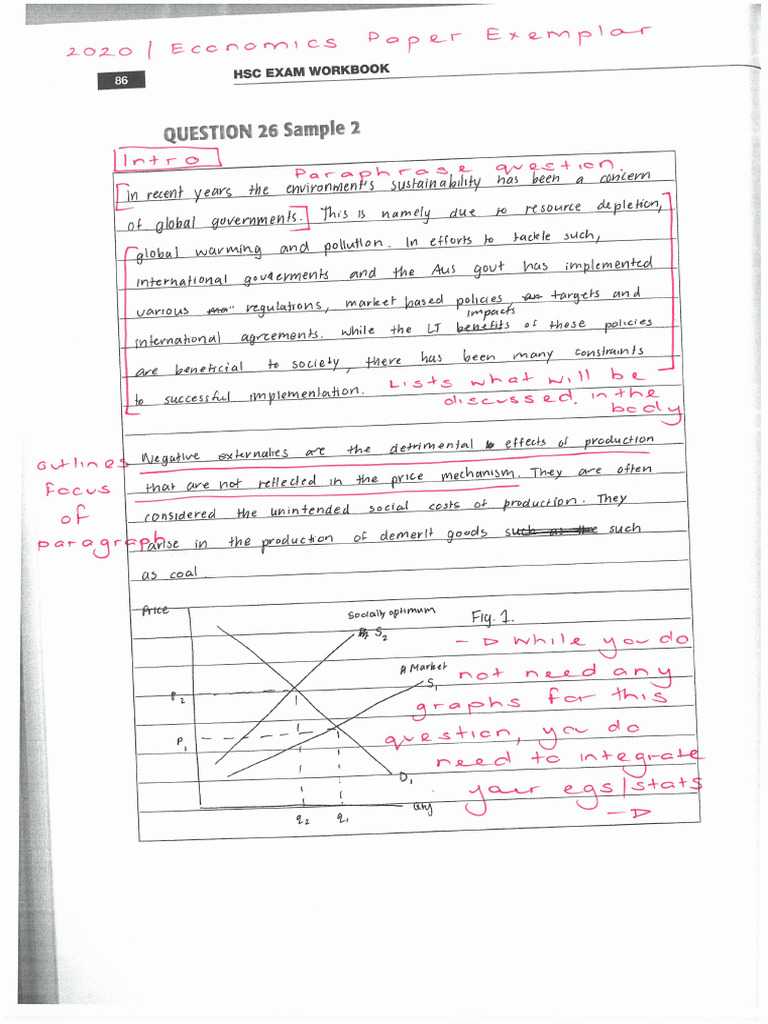 2020 / Economics Paper Exemplar
86
HSC EXAM WORKBOOK
QUESTION 26 Sample 2
Intro
Paraphrase question.
In recent years the environment's sustainability has been a concern
of global governments. This is namely due to resource depletion,
global warming and pollution. In efforts to tackle such,
international gouverments and the Aus gout has implemented
various regulations, market based policies, targets and
impacts
international agreements. While the LT benefits of these policies
are beneficial to society, there has been many constraints
to successful implementation.
Lists what will be
discussed in the
body
outlines
focus
of
paragraph
Negative externalies are the detrimental effects of production
that are not reflected in the price mechanism. They are often
considered the unintended social costs of production. They
arise in the production of demerit goods such as the such
as coal.
Price
Socially optimum
S2
Fig. 1.
A Market
S1
P2
P1
D1
q2
q1
Qty
→ While you do
not need any
graphs for this
question, you do
need to integrate
your egs/stats